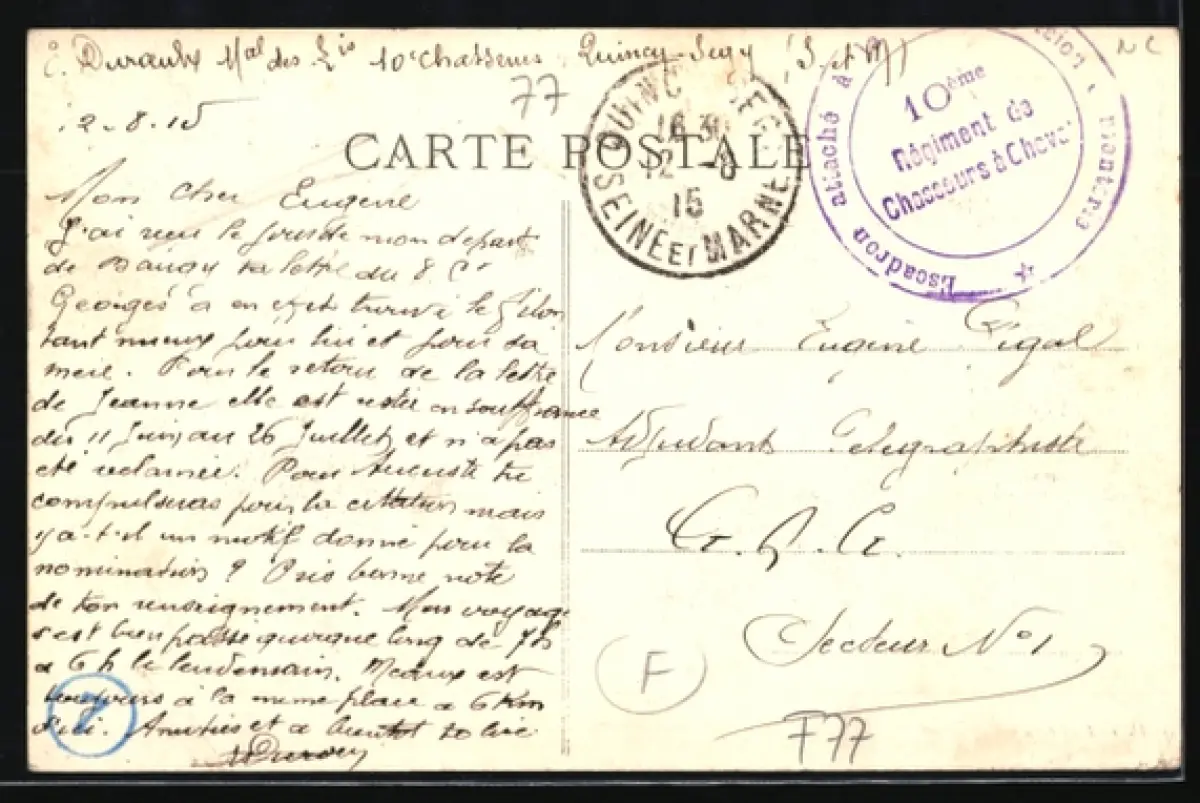 E. Durault Mal des Lis 10e Chasseurs Quincy-Segy (S. et M)
77
12-8-15
CARTE POSTALE
QUINCY SEGY
16 30
12 - 8
15
SEINE ET MARNE
Escadron attaché à
10ème
Régiment de
Chasseurs à Cheval
Mon cher Eugène
J'ai reçu le jour de mon départ
de ta lettre du 8 Ct
Georges a en effet trouvé le filon
tant mieux pour lui et pour sa
mère. Pour le retour de la lettre
de Jeanne elle est restée en souffrance
du 11 Juin au 26 Juillet et n'a pas
été réclamée. Pour Auguste tu
compulseras pour la citation mais
y a-t-il un motif donné pour la
nomination ? Pris bonne note
de ton renseignement. Mon voyage
s'est bien passé quoique long de 7h
à 6h le lendemain. Meaux est
toujours à la même place à 6 Km
d'ici. Amitiés et à bientôt te lire
Monsieur Eugène Pigal
Adjudant Télégraphiste
G. Q. G.
Secteur No 1
F
F77
7